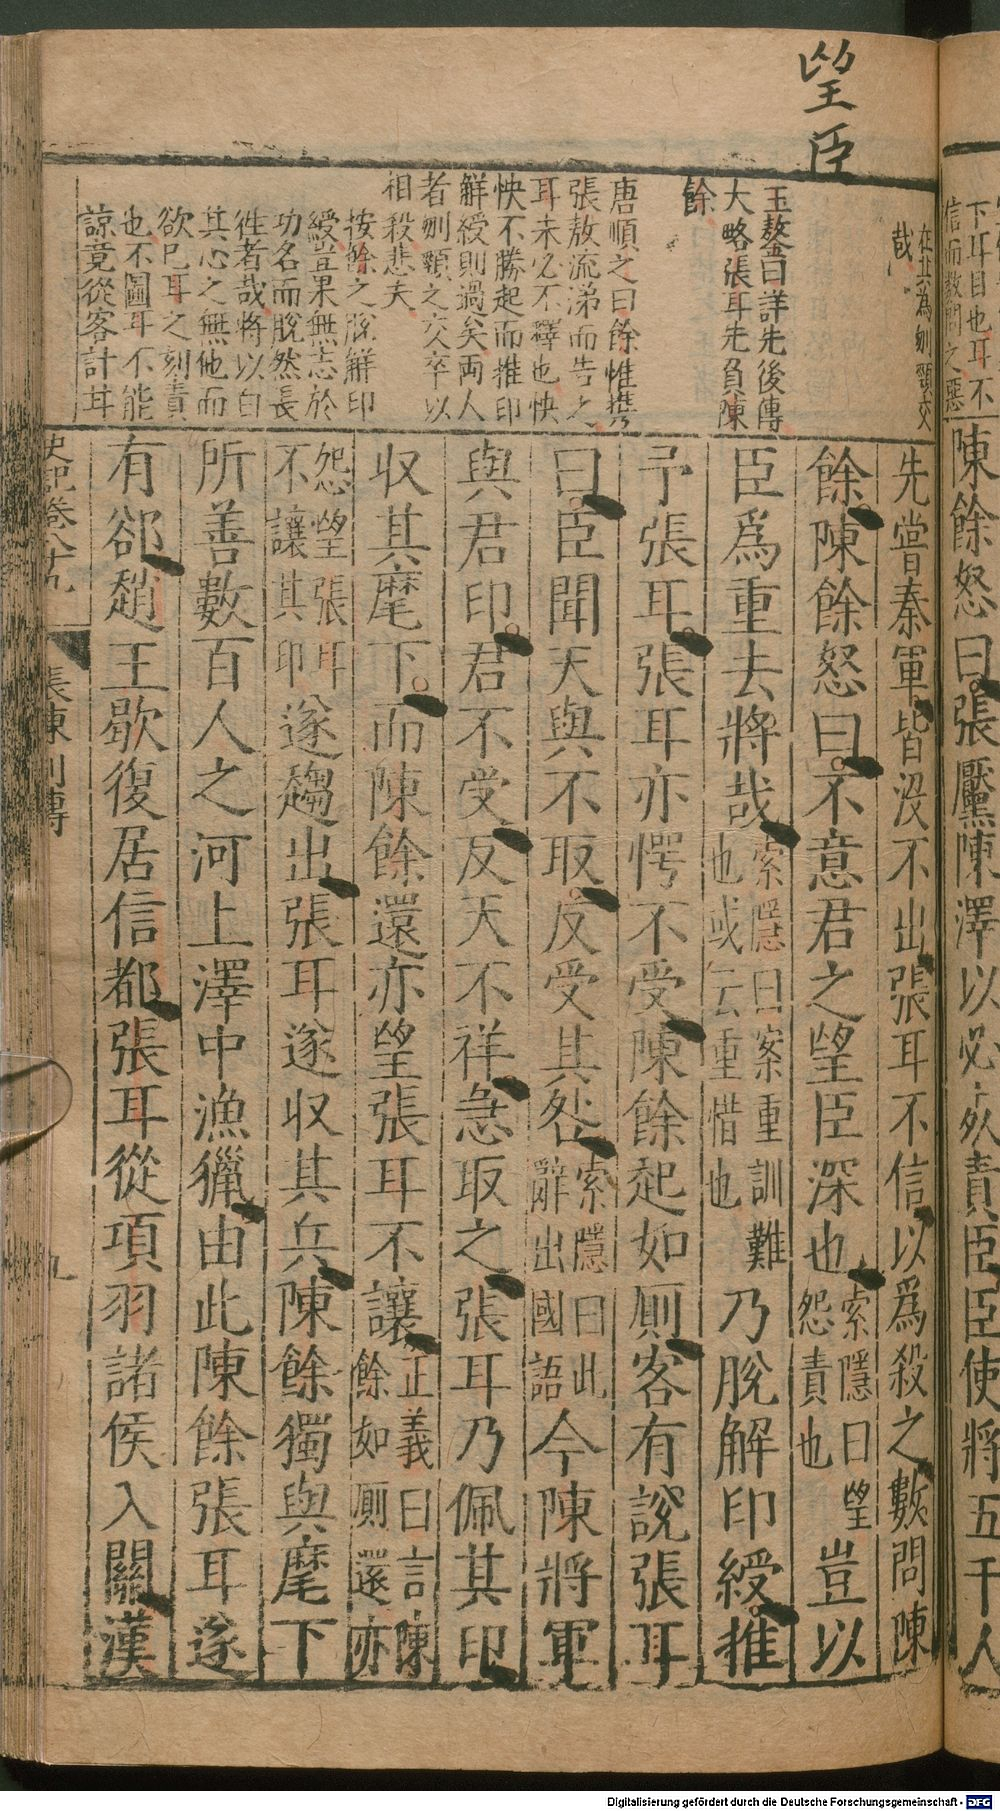 望臣
下耳目也耳不
信而數問之惡
陳餘怒曰張黶陳澤以必死責臣臣使將五千人
在其為刎頸交
哉
王鏊曰詳先後傳
大略張耳先負陳
餘
唐順之曰餘惟攜
張敖流涕而告之
耳未必不釋也怏
怏不勝起而推印
解綬則過矣兩人
者刎頸之交卒以
相殺悲夫
按餘之脫解印
綬豈果無志於
功名而脫然長
徃者哉將以白
其心之無他而
欲已耳之刻責
也不圖耳不能
諒竟從客計耳
先嘗秦軍皆沒不出張耳不信以爲殺之數問陳
餘陳餘怒曰不意君之望臣深也索隱曰望怨責也豈以
臣爲重去將哉索隱曰案重訓難也或云重惜也乃脫解印綬推
予張耳張耳亦愕不受陳餘起如厠客有說張耳
曰臣聞天與不取反受其咎索隱曰此辭出國語今陳將軍
與君印君不受反天不祥急取之張耳乃佩其印
収其麾下而陳餘還亦望張耳不讓正義曰言陳餘如厠還亦
怨望張耳不讓其印遂趨出張耳遂収其兵陳餘獨與麾下
所善數百人之河上澤中漁獵由此陳餘張耳遂
有郤趙王歇復居信都張耳從項羽諸侯入關漢
史記卷八十九 張陳列傳 九
Digitalisierung gefördert durch die Deutsche Forschungsgemeinschaft - DFG